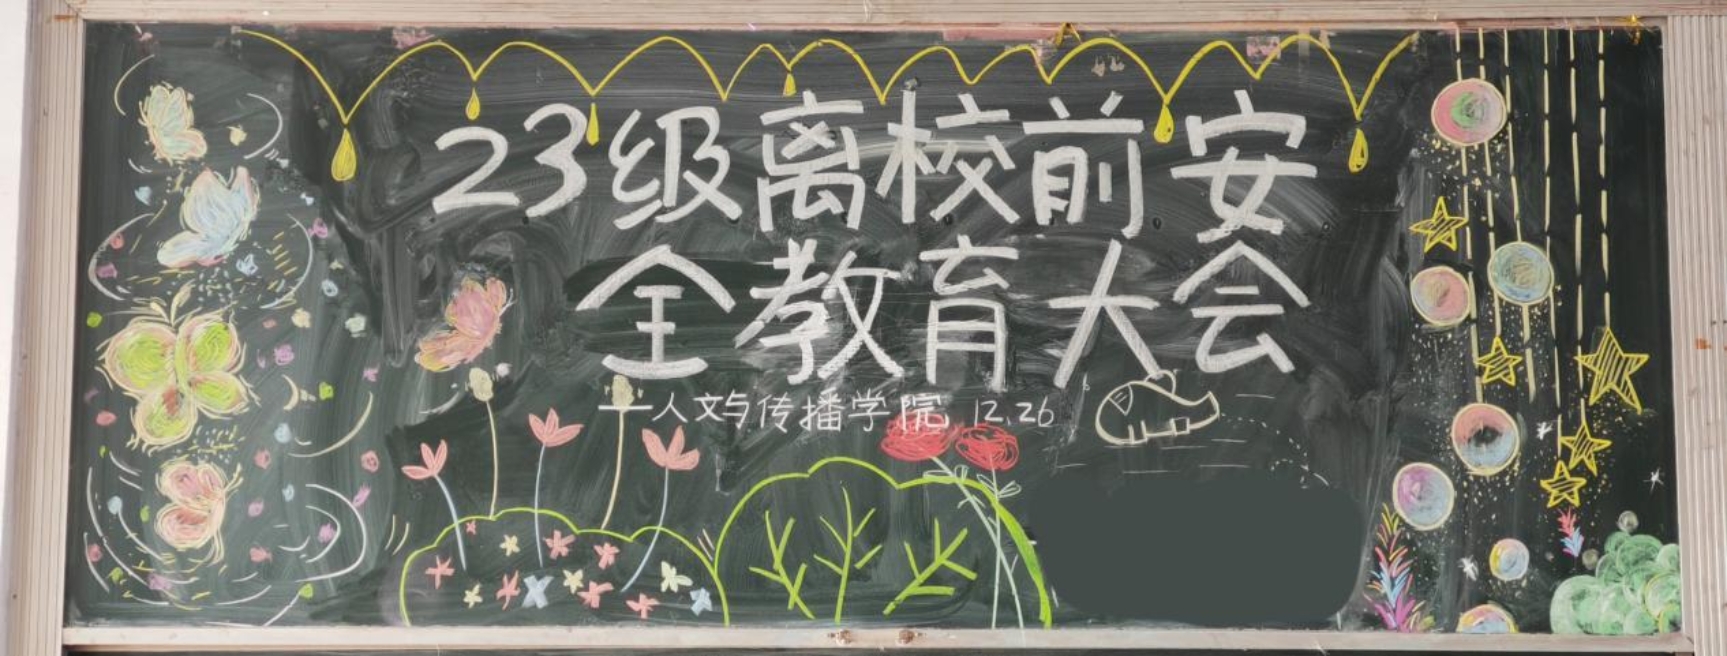 23级离校前安
全教育大会
—人文与传播学院 12.26